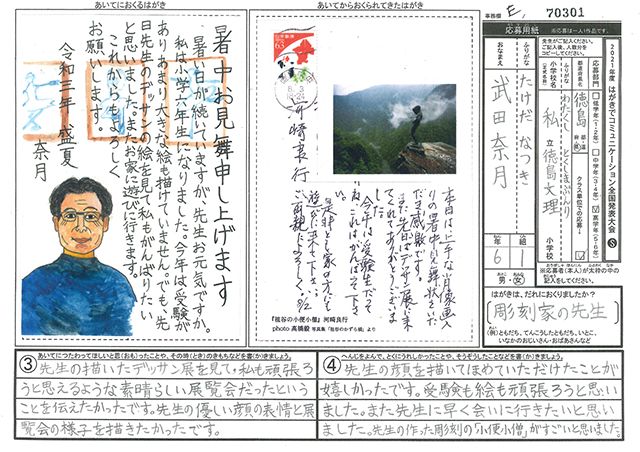 あいてにおくるはがき
暑中お見舞申し上げます
暑い日が続いていますが、先生お元気ですか。
私は小学六年生になりました。今年は受験が
ありあまり大きな絵も描けていません。でも、先
日先生のデッサンの絵を見て私もがんばりたい
と思いました。またお家に遊びに行きます。
これからもよろしく
お願いします。
令和三年 盛夏
奈月
あいてからおくられてきたはがき
63
河崎良行
本日は上手な似顔絵入
りの暑中見舞状をいた
だき感激です。
また先日はデッサン展に来
てくれてありがとうございま
『祖谷の小便小僧』河崎良行
photo 高橋毅 写真集『祖谷のかずら橋』より
事務欄 E, 70301
応募用紙
※応募は一人1作品です。
2021年度 はがきでコミュニケーション全国発表大会 S
先生がご記入ください。
ご記入後、人数分を
コピーしてください。
応募部門
低学年(1・2年)
中学年(3・4年)
高学年(5・6年)
都道府県名
徳島
クラス単位での応募
ふりがな
小学校名
私立徳島文理
小学校
※応募者(本人)が太枠の中の
記入をしてください。
ふりがな
たけだ なつき
おなまえ
武田奈月
6年
1組
男・女
はがきは、だれにおくりましたか?
彫刻家の先生
(例)ともだち、てんこうしたともだち、いとこ、
いなかのおじいさん・おばあさんなど
③ あいてにつたわってほしいと思(おも)ったことや、その時(とき)のきもちなどを書(か)きましょう。
先生の描いたデッサン展を見て、私も頑張ろ
うと思えるような素晴らしい展覧会だったという
ことを伝えたかったです。先生の優しい顔の表情と展
覧会の様子を描きたかったです。
④ へんじをよんで、とくにうれしかったことや、そうぞうしたことなどを書(か)きましょう。
先生の顔を描いてほめていただけたことが
嬉しかったです。受験も絵も頑張ろうと思い
ました。また先生に早く会いに行きたいと思い
ました。先生の作った彫刻の「小便小僧」がすごいと思いました。